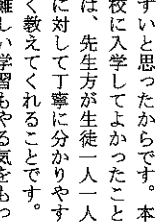 ずいと思ったからです。本
校に入学してよかったこと
は、先生方が生徒一人一人
に対して丁寧に分かりやす
く教えてくれることです。
難しい学習もやる気をもっ